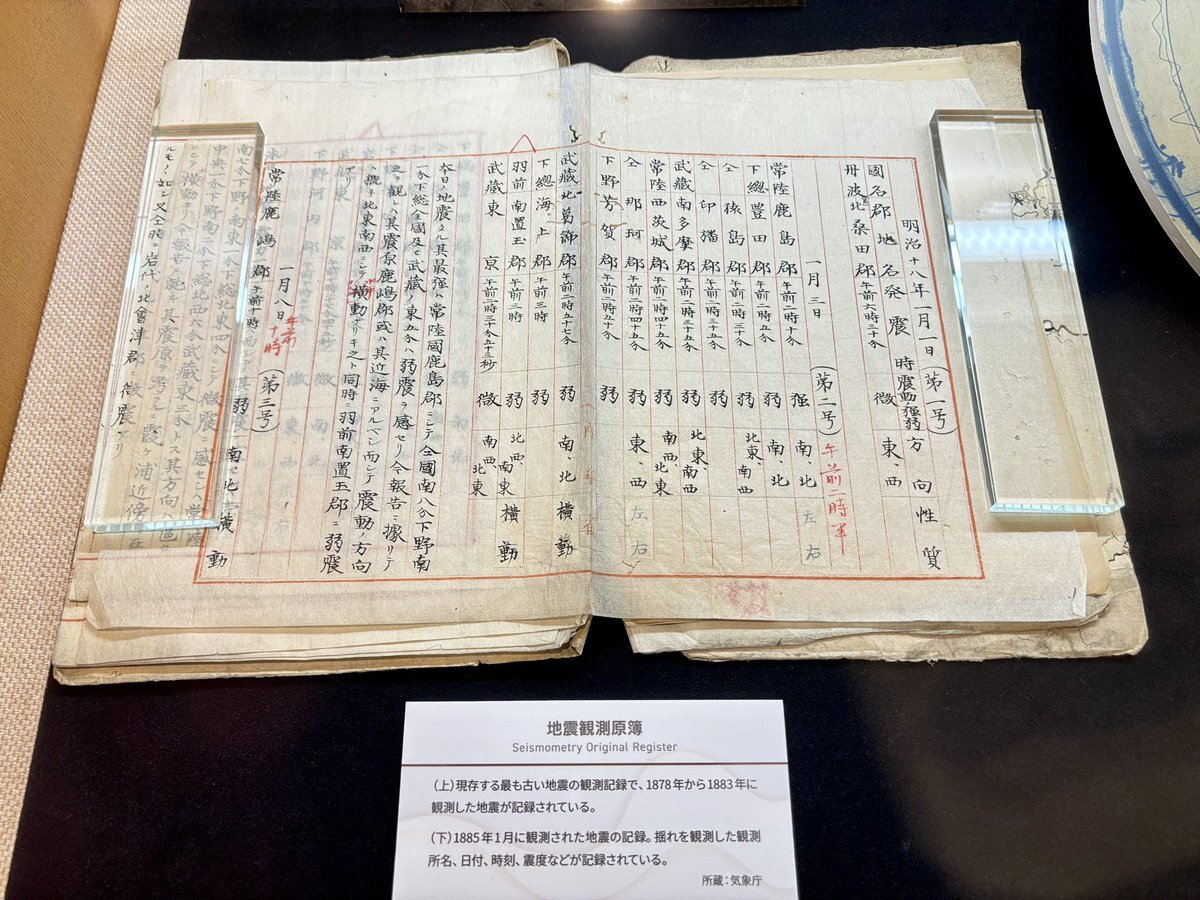 明治十八年一月一日（第一号）
國名郡地名発震時震動ノ強弱方向性質
丹波北桑田郡午前二時三十分 微 東、西
一月三日（第二号）午前二時半
常陸鹿島郡午前二時十五分 强 南、北 左右
下總豊田郡午前二時十五分 弱 南、北
仝猿島郡午前二時三十分 弱 北東、南西
仝印旛郡午前二時 弱
武蔵南多摩郡午前二時三十五分 弱 北東、南西
常陸西茨城郡午前二時 弱 南西、北東
仝那珂郡午前二時四十分 弱 東、西 左右
下野芳賀郡午前二時五十分
武蔵北葛飾郡午前二時五十七分 弱 南、北 横動
下總海上郡午前三時 弱
羽前南置玉郡午前三時 弱 北西、南東 横動
武蔵東京午前二時三十分五十三秒 微 南西、北東
本日ノ地震タル其最强ハ常陸國鹿島郡ニシテ仝國南八分下野南
一分下総全國及ヒ武蔵ノ東五分ハ弱震ヲ感セリ今報告ニ據リテ
之ヲ観レハ其震原鹿嶋郡或ハ其近海ニアルベシ而シテ震動ノ方向
概子北東南西ニシテ横動ナリキ之ト同時羽前南置玉郡ニ弱震
アリ
一月八日午前十時（第三号）
常陸鹿嶋郡午前十時 弱 南、北 横動
ルモノヽ如シ又仝時ニ岩代ノ北會津郡ニ微震アリ
地震観測原簿
Seismometry Original Register
（上）現存する最も古い地震の観測記録で、1878年から1883年に
観測した地震が記録されている。
（下）1885年1月に観測された地震の記録。揺れを観測した観測
所名、日付、時刻、震度などが記録されている。
所蔵：気象庁